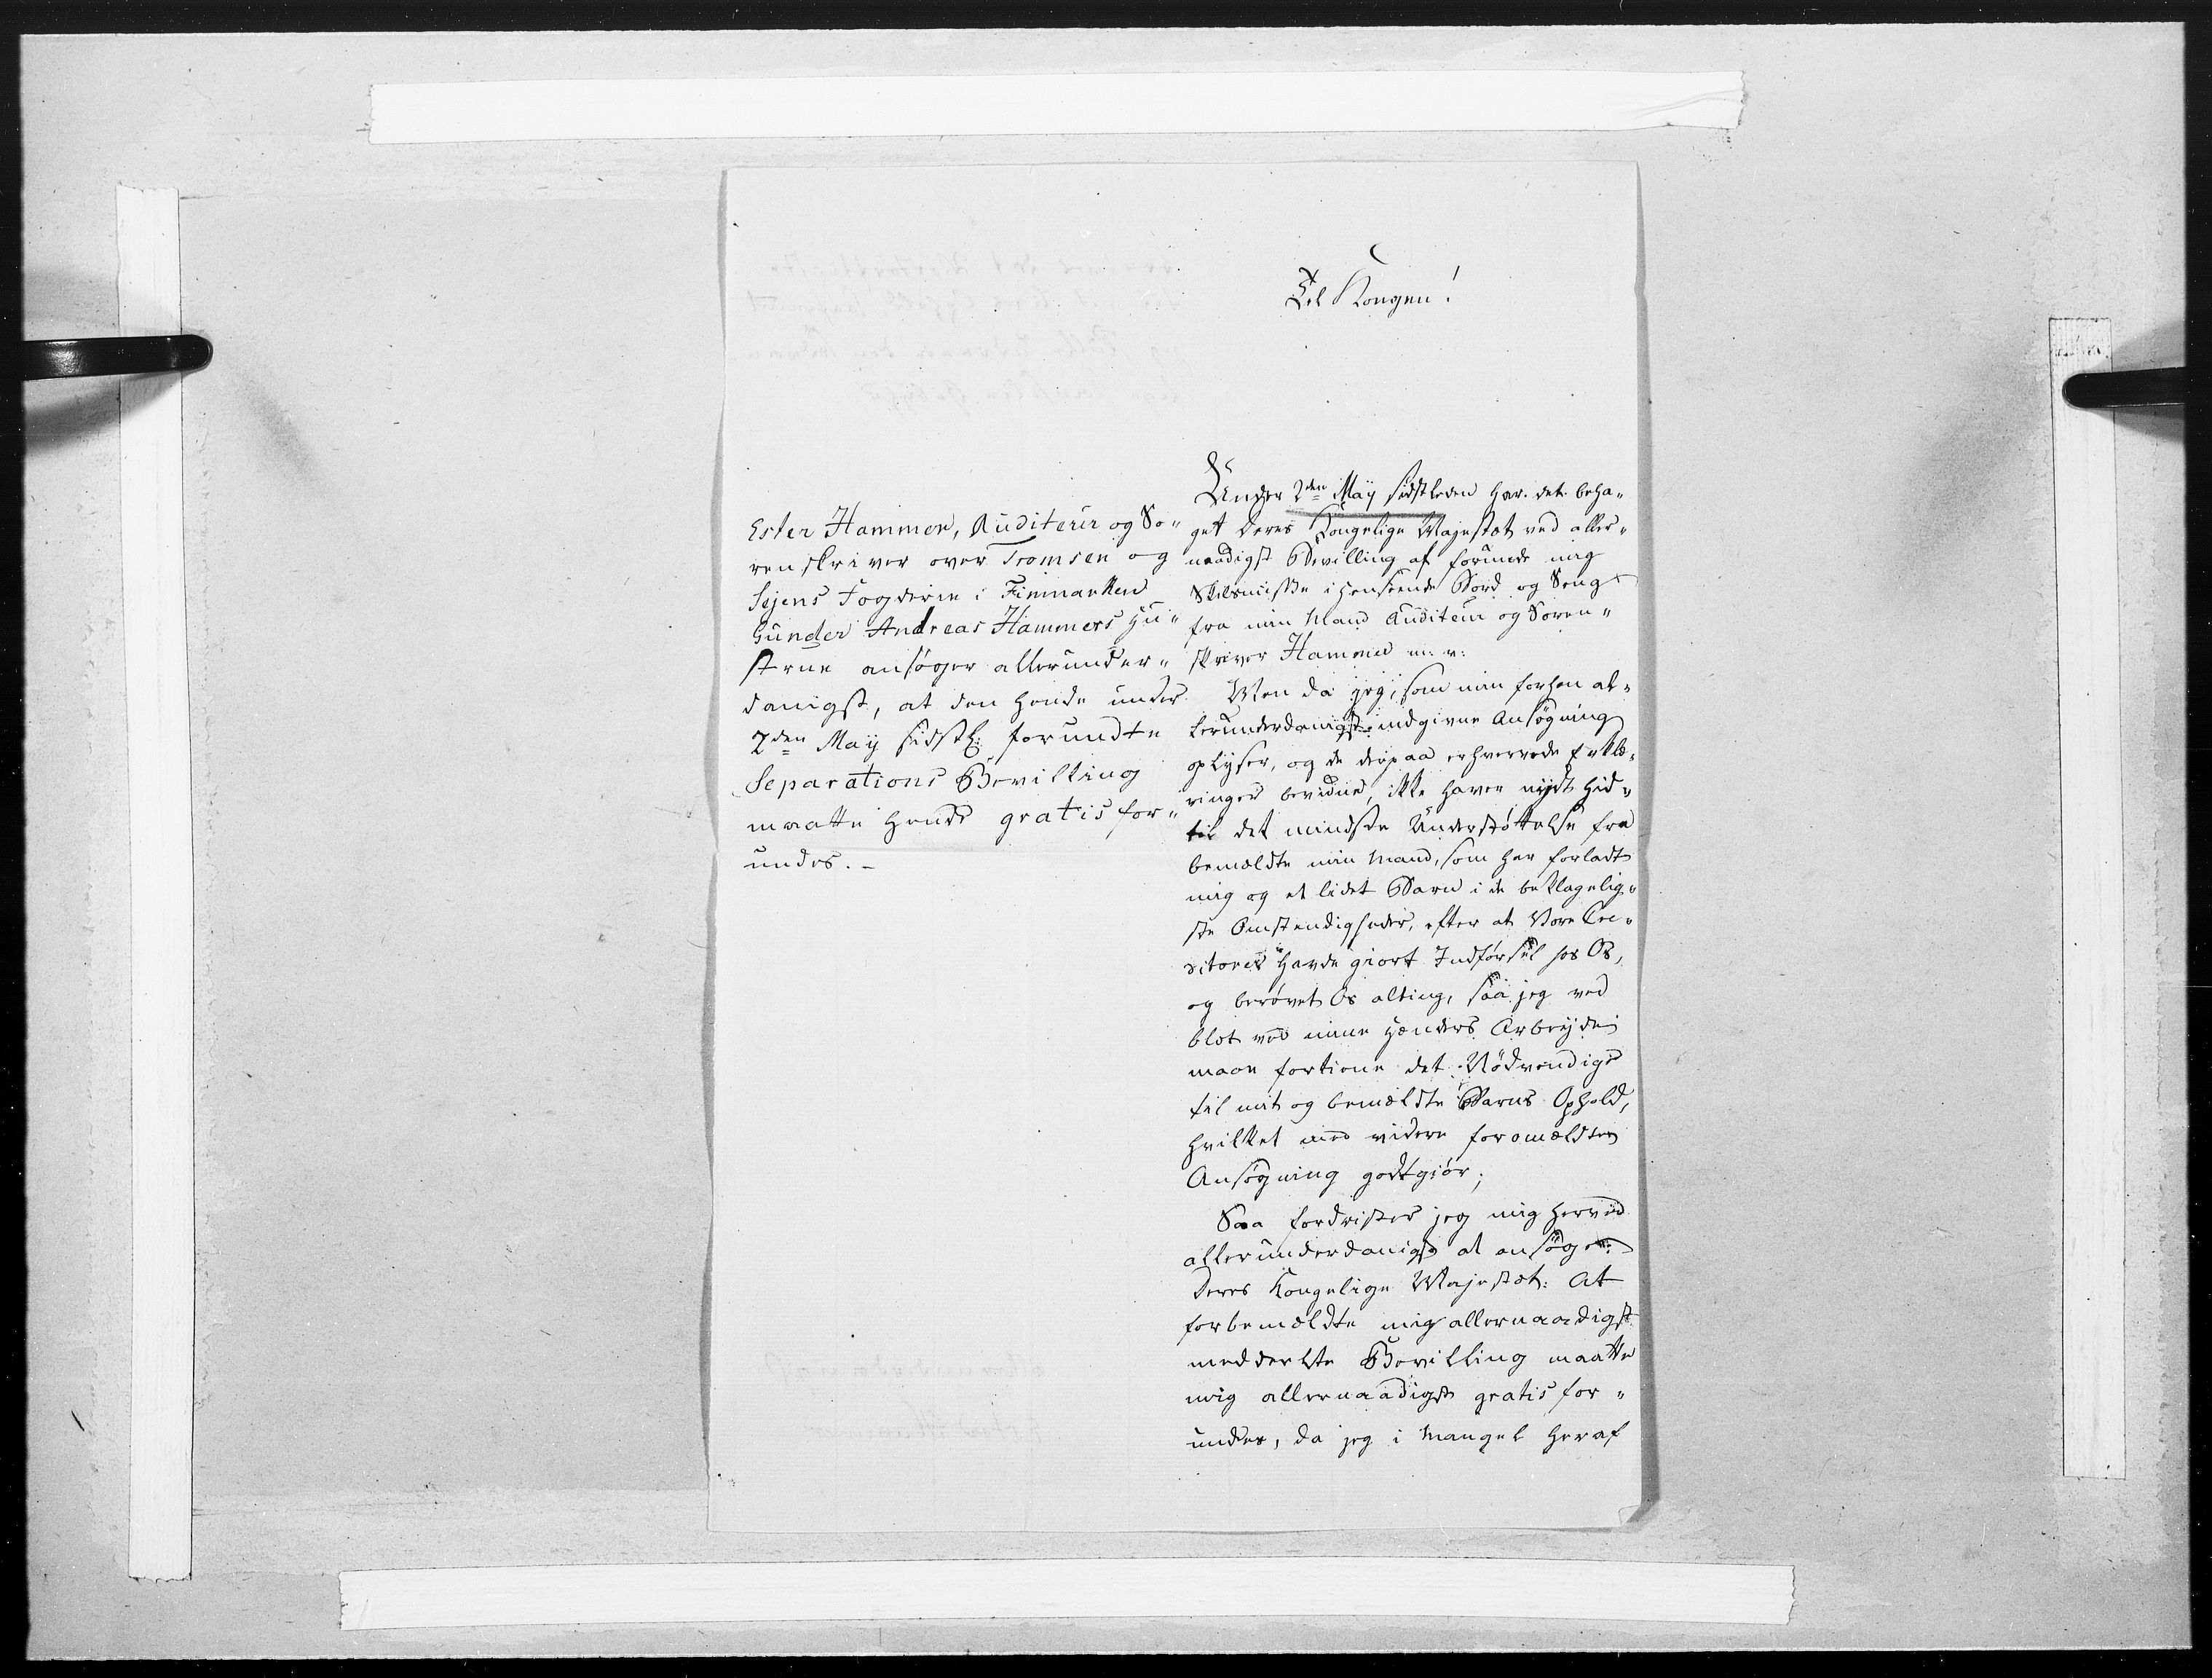 Til Kongen!
Ester Hammer, Auditeur og So-
renskriver over Tromsen og
Sejens Fogderie i Finmarken
Gunder Andreas Hammers Hu-
strue ansøger allerunder-
danigst, at den hende under
2den May sidstl: forundte
Separations Bevilling
maatte hende gratis for-
undes. -
Under 2den May sidstleden har det beha-
get Deres Kongelige Majestæt ved aller-
naadigst Bevilling at forunde mig
Skilsmisse i henseende Bord og Seng
fra min Mand Auditeur og Soren-
skriver Hammer m: v:
Men da jeg, som min forhen al-
lerunderdanigst indgivne Ansøgning
oplyser, og de derpaa erhvervede Erklæ-
ringer bevidne, ikke haver nydt hid-
til det mindste Understøttelse fra
bemældte min Mand, som har forladt
mig og et lidet Barn i de beklagelig-
ste Omstendigheder, efter at Vore Cre-
ditores havde giort Indførsel hos Os,
og berøvet Os alting, saa jeg ved
blot ved mine Hænders Arbeyde
maae fortiene det Nødvendige
til mit og bemældte Barns Ophold,
hvilket med videre foromældte
Ansøgning godtgiør;
Saa fordrister jeg mig herved
allerunderdanigst at ansøge
Deres Kongelige Majestæt: At
forbemældte mig allernaadigst
meddeelte Bevilling maatte
mig allernaadigst gratis for-
undes, da jeg i Mangel heraf